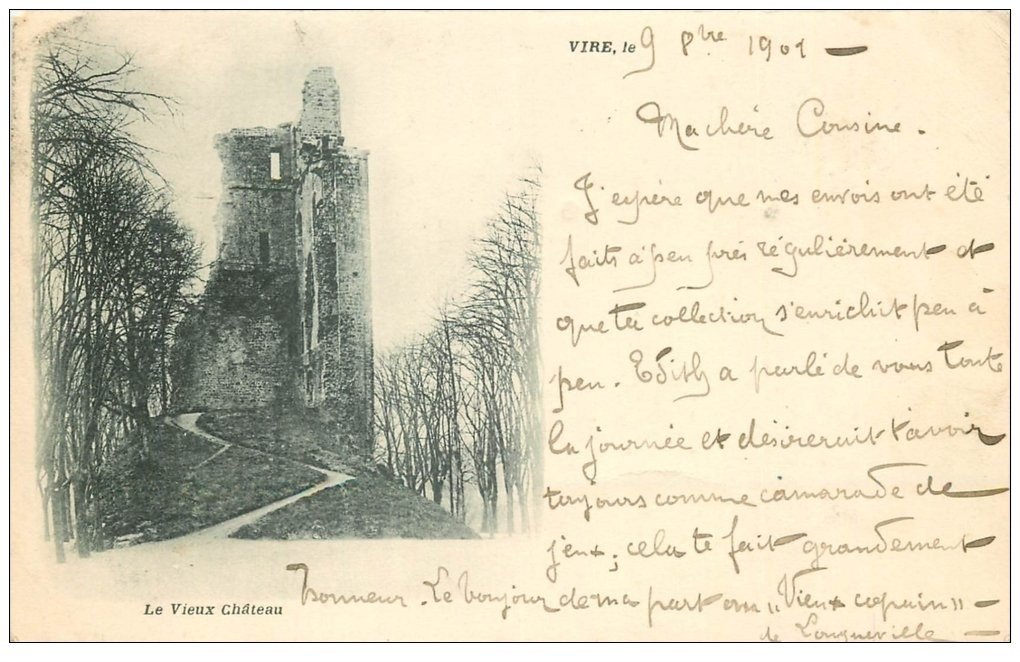 VIRE, le 9 8bre 1901 —
Ma chère Cousine.
J'espère que mes envois ont été
faits à peu près régulièrement et
que ta collection s'enrichit peu à
peu. Edith a parlé de vous toute
la journée et désirerait t'avoir
toujours comme camarade de
jeux, cela te fait grandement
honneur. Le bonjour de ma part au "Vieux copain" —
de Longueville —
Le Vieux Château